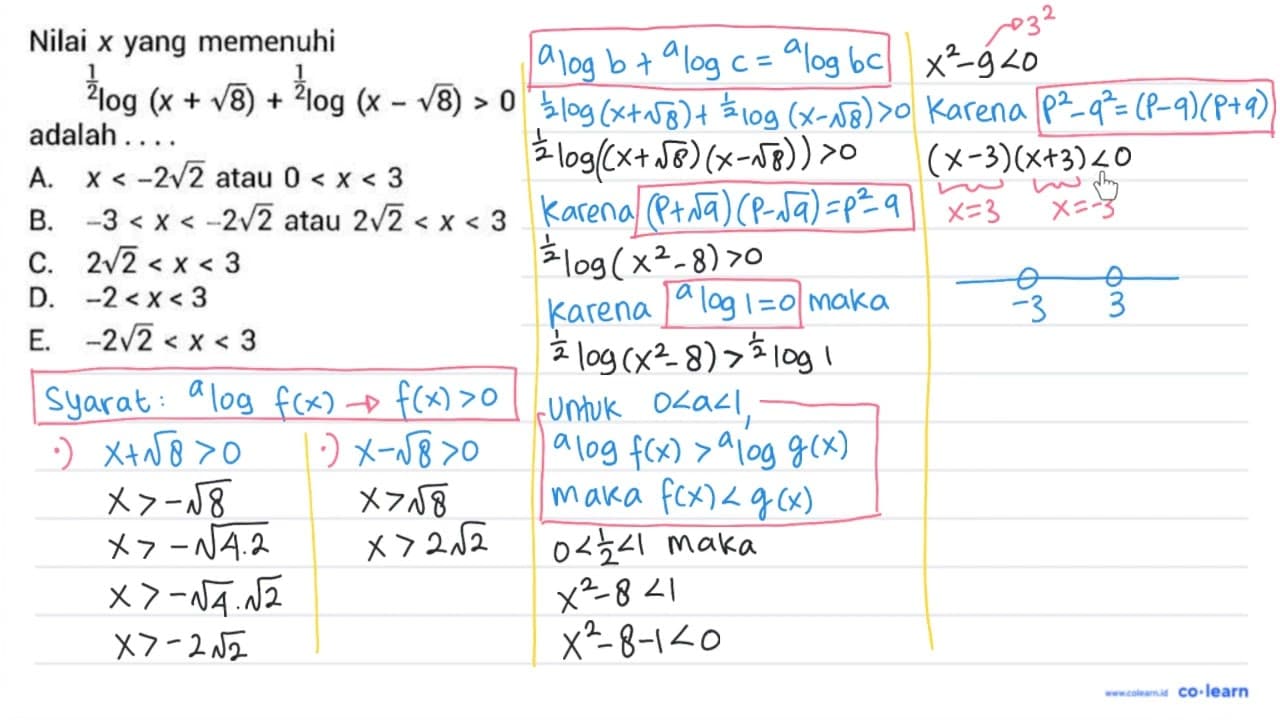 Nilai x yang memenuhi
½log (x + √8) + ½log (x − √8) > 0
adalah . . . .
A. x < −2√2 atau 0 < x < 3
B. −3 < x < −2√2 atau 2√2 < x < 3
C. 2√2 < x < 3
D. −2 < x < 3
E. −2√2 < x < 3
Syarat: ᵃlog f(x) → f(x) > 0
•) x+√8 > 0
x > -√8
x > -√4.2
x > -√4.√2
x > -2√2
•) x-√8 > 0
x > √8
x > 2√2
ᵃlog b + ᵃlog c = ᵃlog bc
½log(x+√8)+ ½log(x-√8)>0
½log((x+√8)(x-√8))>0
Karena (p+√q)(p-√q)=p²-q
½log(x²-8)>0
Karena ᵃlog 1=0 maka
½log(x²-8)>½log 1
Untuk 0<a<1,
ᵃlog f(x) > ᵃlog g(x)
maka f(x)< g(x)
0<½<1 maka
x²-8 <1
x²-8-1<0
3²
x²-9<0
Karena p²-q²=(p-q)(p+q)
(x-3)(x+3)<0
x=3 x=-3
-3 3
www.colearn.id co·learn